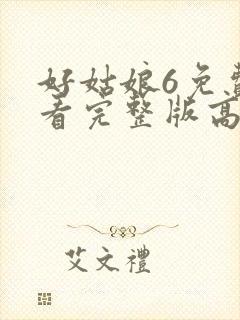 好姑娘6免费
看完整版高
艾文禮